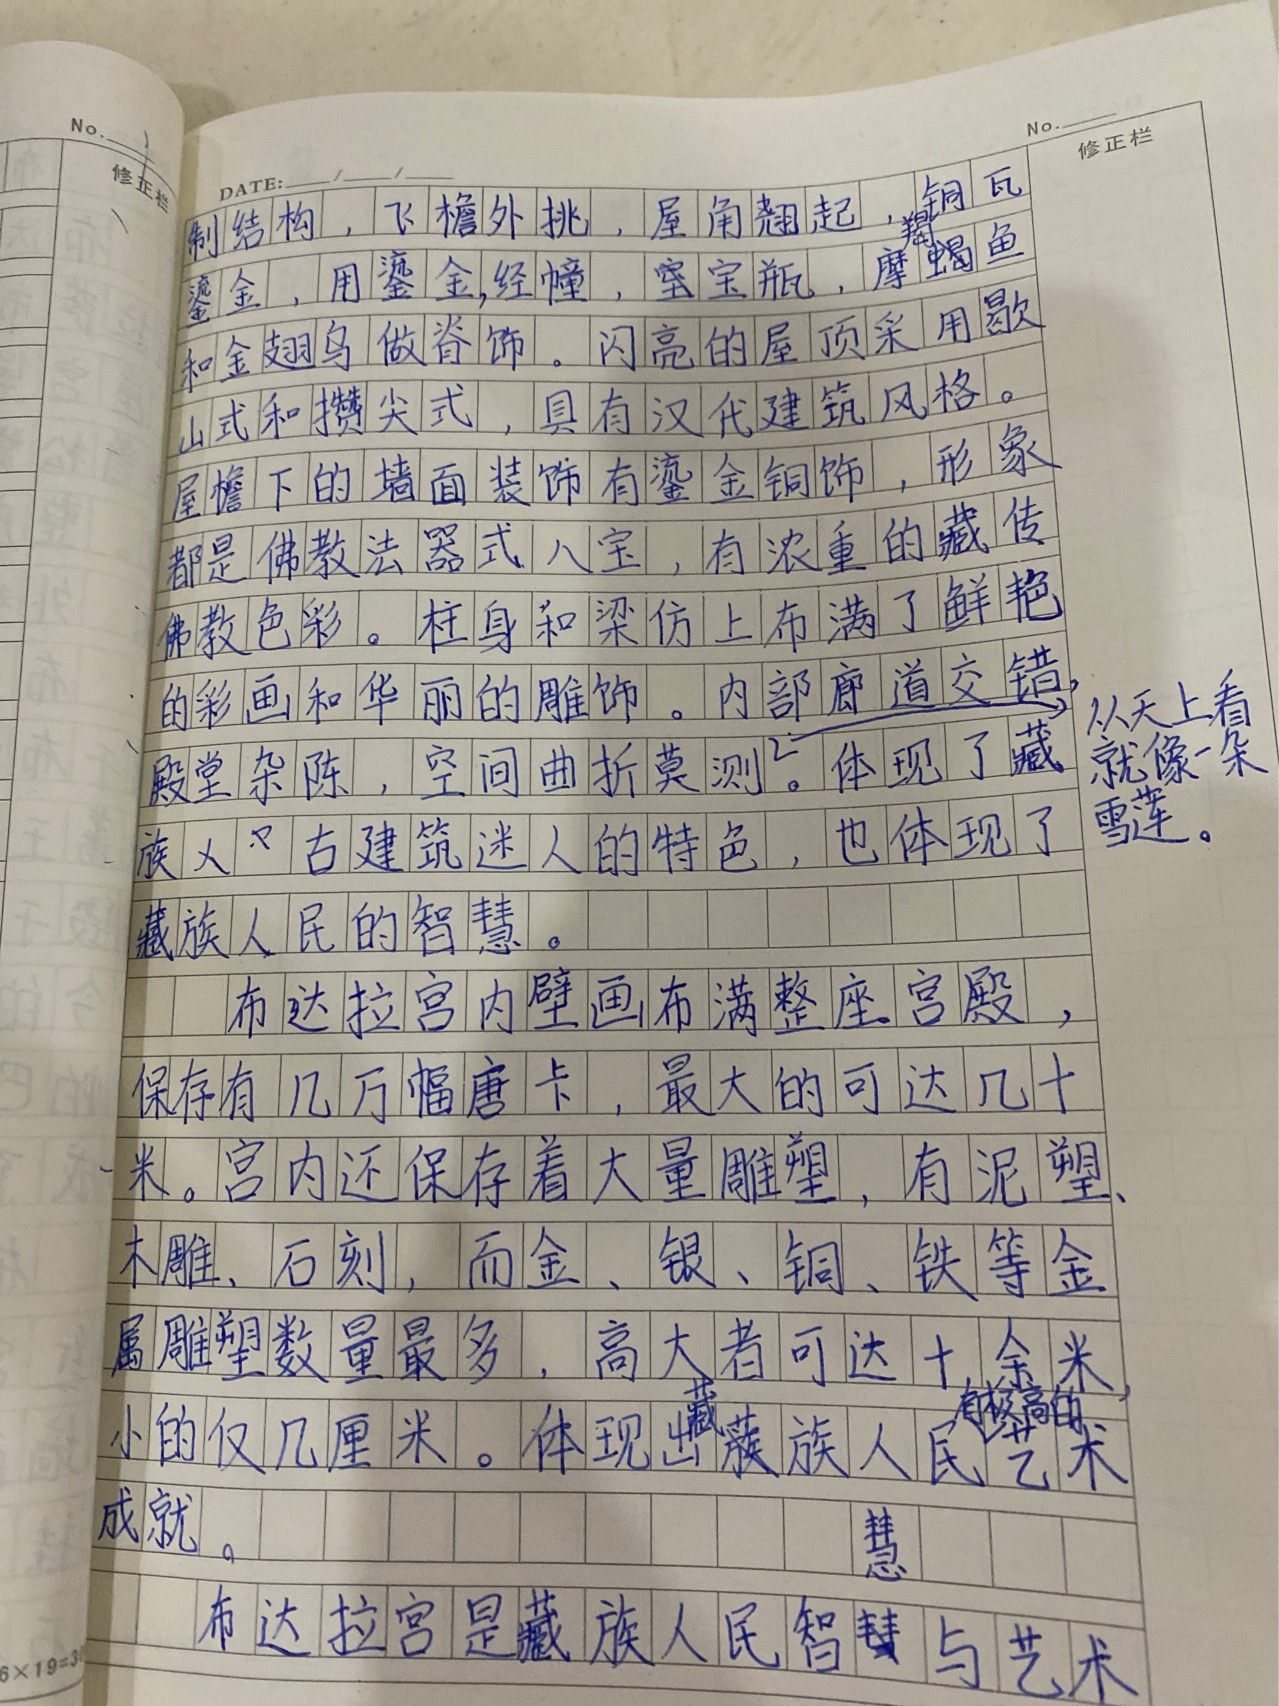 No.
修正栏
DATE: / /
No.
修正栏
制结构，飞檐外挑，屋角翘起，铜瓦
羯
鎏金，用鎏金,经幢，宝瓶，摩蝎鱼
和金翅鸟做脊饰。闪亮的屋顶采用歇
山式和攒尖式，具有汉代建筑风格。
屋檐下的墙面装饰有鎏金铜饰，形象
都是佛教法器式八宝，有浓重的藏传
佛教色彩。柱身和梁仿上布满了鲜艳
的彩画和华丽的雕饰。内部廊道交错，
殿堂杂陈，空间曲折莫测。体现了藏
从天上看
就像一朵
雪莲。
族古建筑迷人的特色，也体现了
藏族人民的智慧。
布达拉宫内壁画布满整座宫殿，
保存有几万幅唐卡，最大的可达几十
米。宫内还保存着大量雕塑，有泥塑、
木雕、石刻，而金、银、铜、铁等金
属雕塑数量最多，高大者可达十余米，
藏
有极高的
小的仅几厘米。体现出族人民艺术
成就。
慧
布达拉宫是藏族人民智与艺术
6×19=3